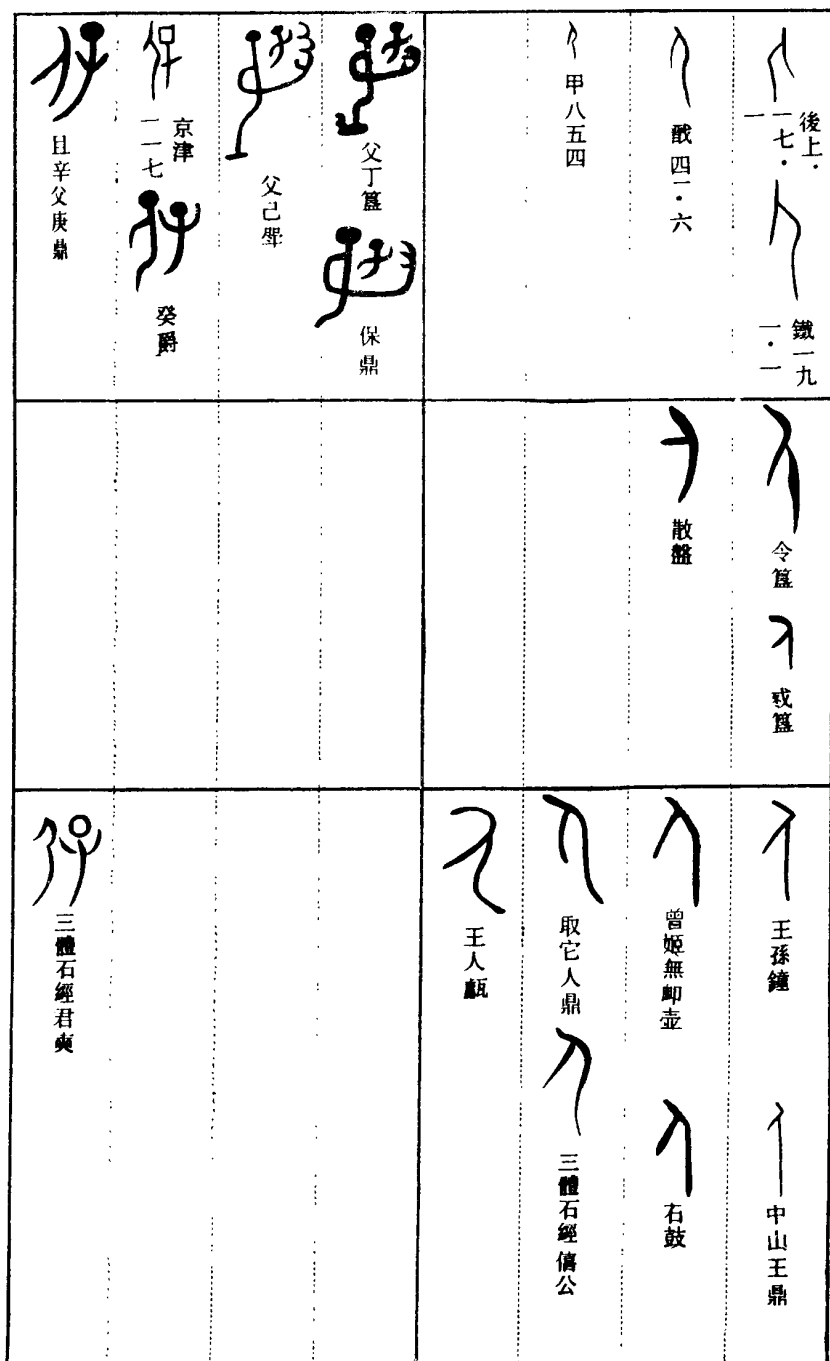 後上・一七・一
鐵一九一・一
戩四二・六
甲八五四
父丁簋
保鼎
父己觶
京津二一一七
癸爵
且辛父庚鼎
令簋
散盤
王孫鐘
中山王鼎
曾姬無卹壺
石鼓
取它人鼎
三體石經僖公
王人甗
三體石經君奭